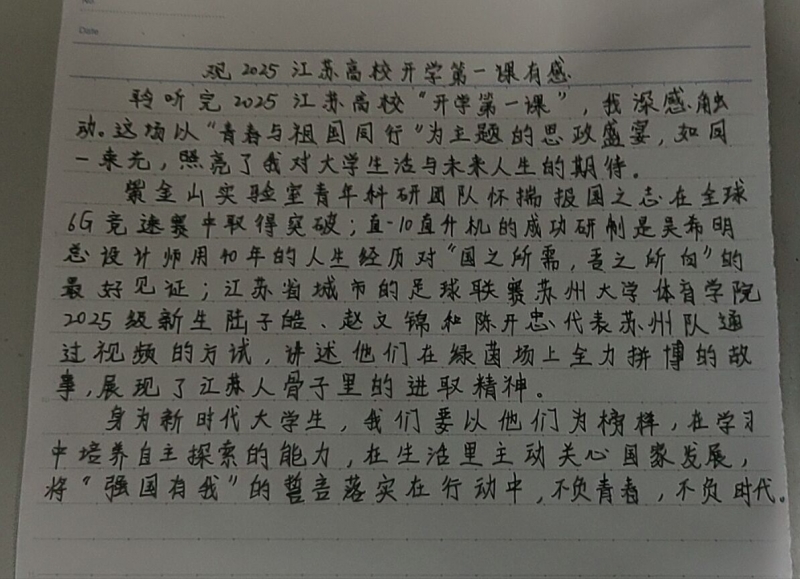 No.
Date
观2025江苏高校开学第一课有感
聆听完2025江苏高校“开学第一课”，我深感触
动。这场以“青春与祖国同行”为主题的思政盛宴，如同
一束光，照亮了我对大学生活与未来人生的期待。
紫金山实验室青年科研团队怀揣报国之志在全球
6G竞速赛中取得突破；直-10直升机的成功研制是吴希明
总设计师用40年的人生经历对“国之所需，吾之所向”的
最好见证；江苏省城市的足球联赛苏州大学体育学院
2025级新生陆子皓、赵文锦和陈开忠代表苏州队通
过视频的方试，讲述他们在绿茵场上全力拼搏的故
事，展现了江苏人骨子里的进取精神。
身为新时代大学生，我们要以他们为榜样，在学习
中培养自主探索的能力，在生活里主动关心国家发展，
将“强国有我”的誓言落实在行动中，不负青春，不负时代。